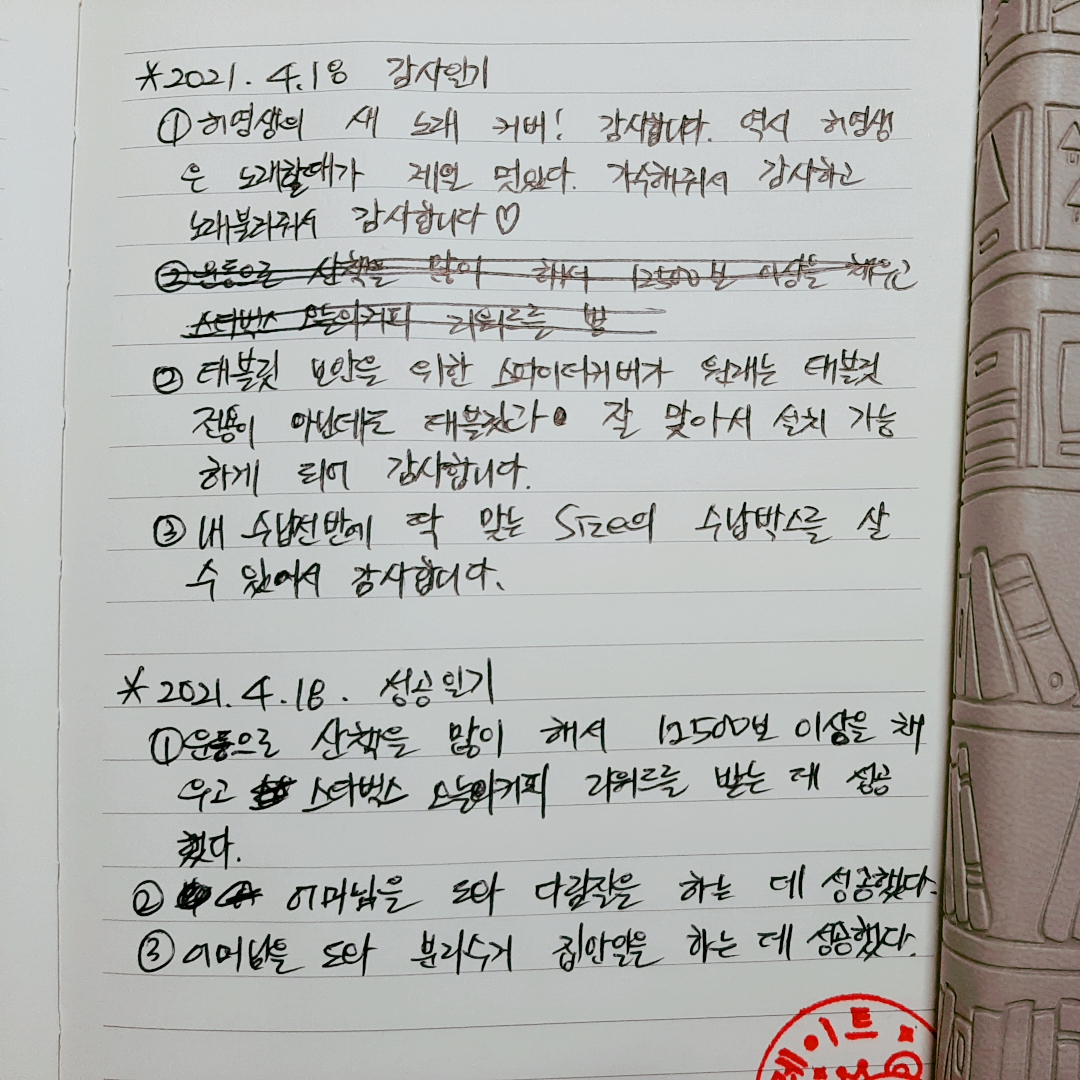 *2021. 4.18 감사일기
① 허영생의 새 노래 커버! 감사합니다. 역시 허영생
은 노래할때가 제일 멋있다. 가수해줘서 감사하고
노래불러줘서 감사합니다♡
② 운동으로 산책을 많이 해서 12500보 이상을 채우고
스타벅스 오늘의커피 리워드를 받
② 태블릿 보안을 위한 스파이더커버가 원래는 태블릿
전용이 아닌데도 태블릿과 잘 맞아서 설치 가능
하게 되어 감사합니다.
③ 내 수납선반에 딱 맞는 Size의 수납박스를 살
수 있어서 감사합니다.
*2021. 4. 18. 성공일기
① 운동으로 산책을 많이 해서 12500보 이상을 채
우고 스타벅스 오늘의커피 리워드를 받는 데 성공
했다.
② 어머님을 도와 다림질을 하는 데 성공했다.
③ 어머님을 도와 분리수거 집안일을 하는 데 성공했다.
페이트